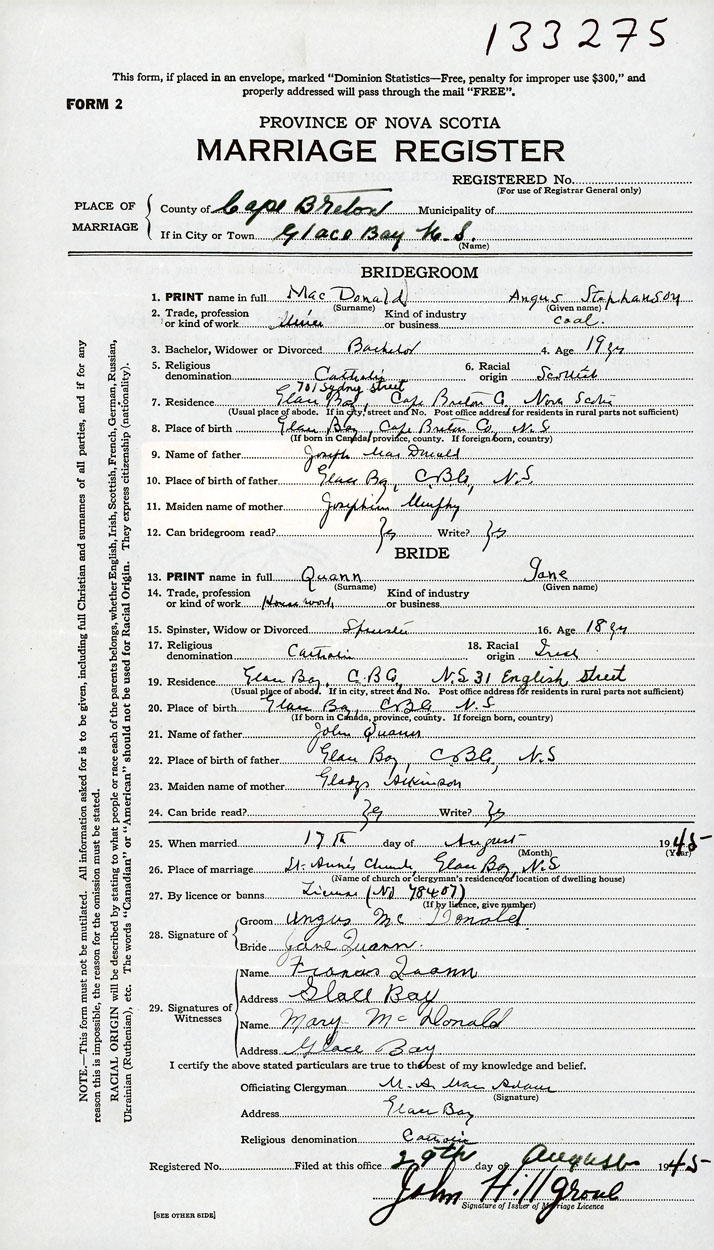 133275
This form, if placed in an envelope, marked "Dominion Statistics—Free, penalty for improper use $300," and
properly addressed will pass through the mail "FREE".
FORM 2
PROVINCE OF NOVA SCOTIA
MARRIAGE REGISTER
REGISTERED No.
(For use of Registrar General only)
PLACE OF MARRIAGE
County of Cape Breton Municipality of
If in City or Town Glace Bay N.S.
(Name)
BRIDEGROOM
1. PRINT name in full Mac Donald Angus Stephanson
(Surname) (Given name)
2. Trade, profession or kind of work Miner Kind of industry or business coal.
3. Bachelor, Widower or Divorced Bachelor 4. Age 19 yrs
5. Religious denomination Catholic 6. Racial origin Scottish
701 Sydney Street
7. Residence Glace Bay, Cape Breton Co, Nova Scotia
(Usual place of abode. If in city, street and No. Post office address for residents in rural parts not sufficient)
8. Place of birth Glace Bay, Cape Breton Co, N.S.
(If born in Canada, province, county. If foreign born, country)
9. Name of father Joseph Mac Donald
10. Place of birth of father Glace Bay, CBCo, N.S.
11. Maiden name of mother Josephine Murphy
12. Can bridegroom read? yes Write? yes
BRIDE
13. PRINT name in full Quann Jane
(Surname) (Given name)
14. Trade, profession or kind of work House work Kind of industry or business
15. Spinster, Widow or Divorced Spinster 16. Age 18 yrs
17. Religious denomination Catholic 18. Racial origin Irish
19. Residence Glace Bay, C.B.Co, N.S. 31 English Street
(Usual place of abode. If in city, street and No. Post office address for residents in rural parts not sufficient)
20. Place of birth Glace Bay, CBCo N.S
(If born in Canada, province, county. If foreign born, country)
21. Name of father John Quann
22. Place of birth of father Glace Bay, CBCo, N.S
23. Maiden name of mother Gladys Atkinson
24. Can bride read? yes Write? yes
25. When married 17th day of August 1945
(Month) (Year)
26. Place of marriage St. Anne's Church, Glace Bay, N.S
(Name of church or clergyman's residence/or location of dwelling house)
27. By licence or banns License (No 78407)
(If by licence, give number)
28. Signature of
Groom Angus Mc Donald
Bride Jane Quann.
29. Signatures of Witnesses
Name Francis Quann
Address Glace Bay
Name Mary McDonald
Address Glace Bay
I certify the above stated particulars are true to the best of my knowledge and belief.
Officiating Clergyman M. A. Mac Adam
(Signature)
Address Glace Bay
Religious denomination Catholic
Registered No. Filed at this office 29th day of August 1945
John Hillgrove
Signature of Issuer of Marriage Licence
[SEE OTHER SIDE]
NOTE.—This form must not be mutilated. All information asked for is to be given, including full Christian and surnames of all parties, and if for any
reason this is impossible, the reason for the omission must be stated.
RACIAL ORIGIN will be described by stating to what people or race each of the parents belongs, whether English, Irish, Scottish, French, German, Russian,
Ukrainian (Ruthenian), etc. The words "Canadian" or "American" should not be used for Racial Origin. They express citizenship (nationality).